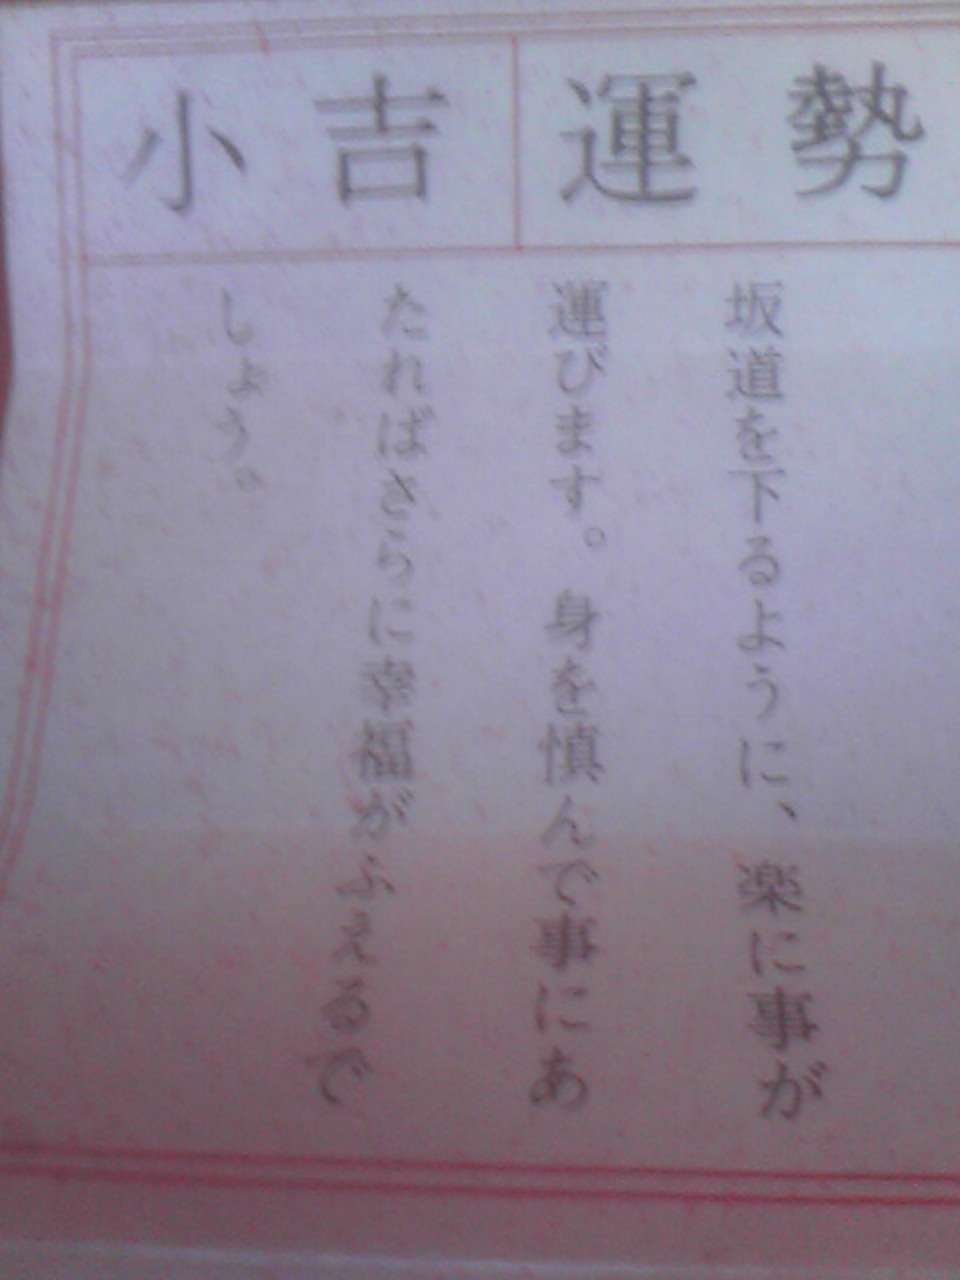 小吉 運勢
坂道を下るように、楽に事が
運びます。身を慎んで事にあ
たればさらに幸福がふえるで
しょう。